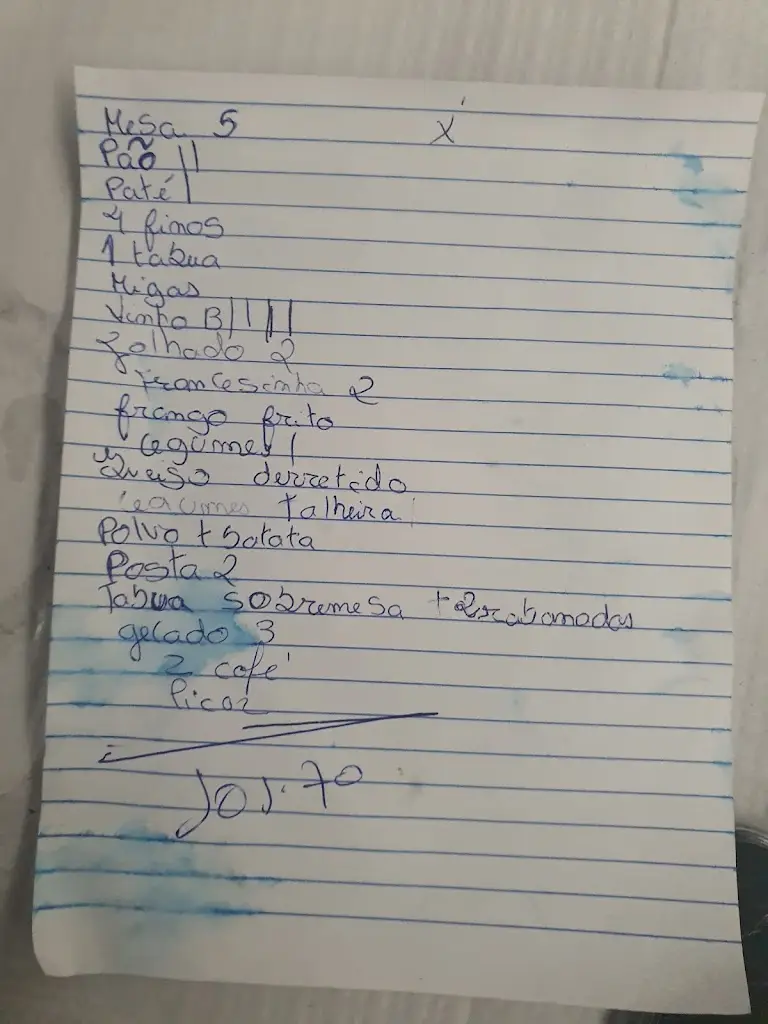 Mesa 5 X
Pão ||
Paté |
4 finos
1 tabua
Migas
Vinho B |||||
folhado 2
francesinha 2
frango frito
legumes |
Queiso derretido
legumes talheira
Polvo + batata
Posta 2
Tabua sobremesa + 2 rabanadas
gelado 3
2 café
licor
101.70